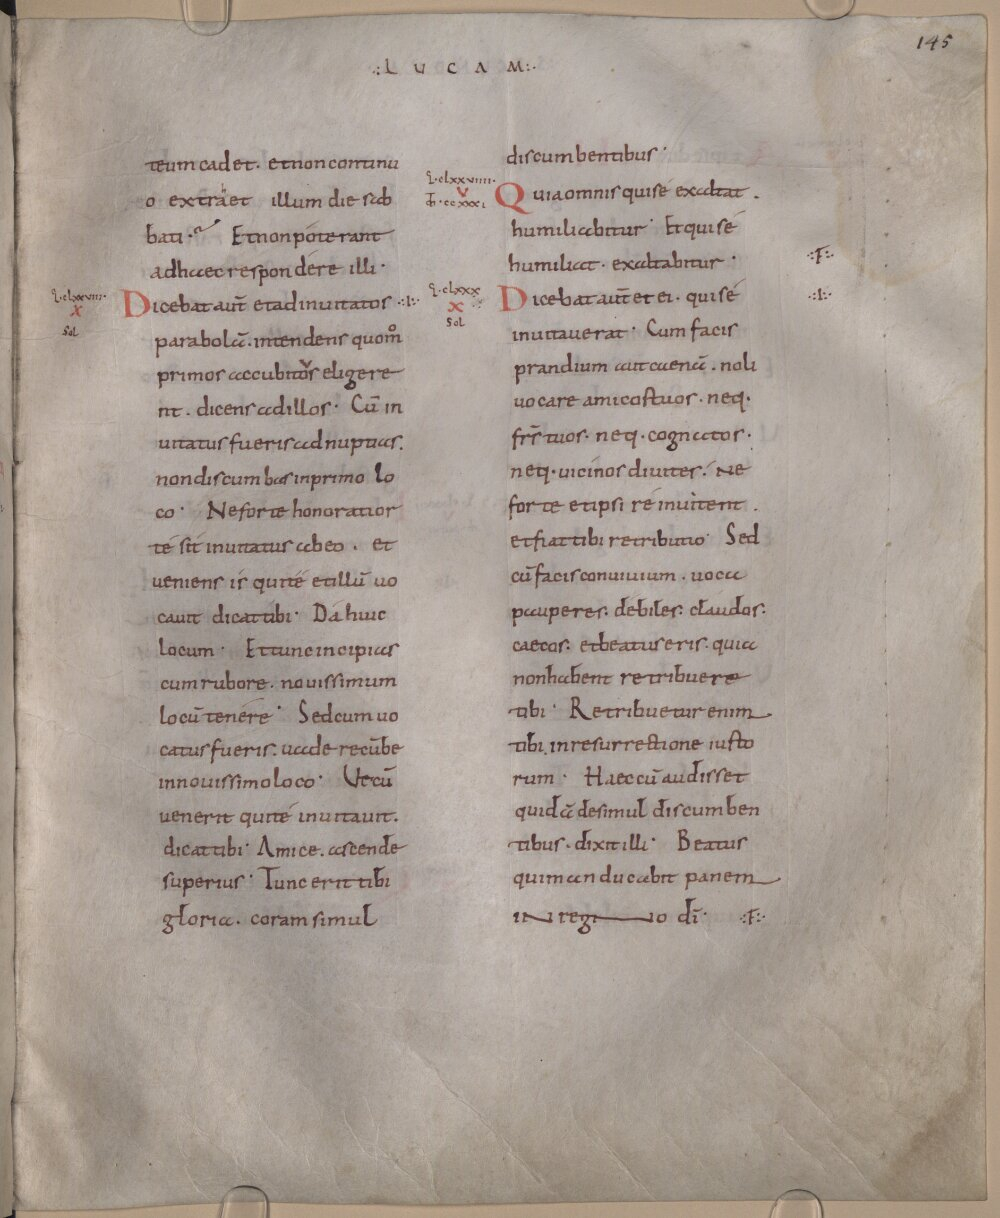 145
.:LUCAM:.
teum cadet. etnon continu
o extrahet illum die sab
bati.? Etnonpoterant
adhaec respondere illi.
Dicebat aut̄ etadinuitatos .:I:.
parabolā. intendens quom̊
primos accubitos eligere
v
nt. dicens adillos. Cū in
uitatus fueris adnuptias.
nondiscumbas inprimo lo
co. Neforte honoratior
te sit inuitatus abeo. et
ueniens is quite etillū uo
cauit dicattibi. Da huic
locum. Ettunc incipias
cumrubore. nouissimum
locū tenere. Sedcumuo
catus fueris. uade recūbe
innouissimoloco. Utcū
venerit quité inuitauit.
dicattibi. Amice. ascende
superius. Tunc erit tibi
gloria. coram simul
l.clxxviii.
x
Sol
discumbentibus.
Quiaomnis quisé exaltat.
humiliabitur. Etquisé
humiliat. exaltabitur. .:F:.
Dicebat aut̄ et ei. quisé .:I:.
inuitauerat. Cum facis
prandium aut caenā. noli
uocare amicostuos. neq.
fr̄s tuos. neq. cognatos.
neq. uicinos diuites. Ne
forte etipsi té inuitent.
etfiattibi retributio. Sed
cū facis conuiuium. uoca
pauperes. debiles. claudos.
caecos. etbeatus eris. quia
nonhabent retribuere
tibi. Retribuetur enim
tibi. inresurrectione iusto
rum. Haec cū audisset
quidā desimul discumben
tibus. dixit illi. Beatus
quimanducabit panem
in regno dī. .:F:.
l.clxxviiii.
v
.ccxxxi
l.clxxx
x
Sol